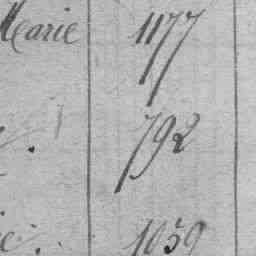 Marie 1177
792
1039